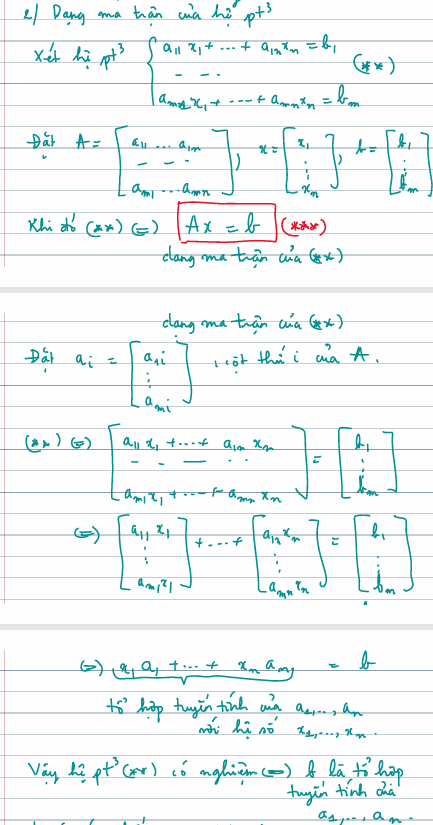 2/ Dạng ma trận của hệ pt³
Xét hệ pt³ { a₁₁ x₁ + ... + a₁ₙ xₙ = b₁
- - - (**)
aₘ₁ x₁ + ... + aₘₙ xₙ = bₘ
Đặt A = [ a₁₁ ... a₁ₙ ; - - - ; aₘ₁ ... aₘₙ ], x = [ x₁ ; ⋮ ; xₙ ], b = [ b₁ ; ⋮ ; bₘ ]
Khi đó (**) (=) Ax = b (***)
dạng ma trận của (**)
dạng ma trận của (**)
Đặt aᵢ = [ a₁ᵢ ; ⋮ ; aₘᵢ ] , cột thứ i của A.
(**) (=) [ a₁₁ x₁ + ... + a₁ₙ xₙ ; - - - - - ; aₘ₁ x₁ + ... + aₘₙ xₙ ] = [ b₁ ; ⋮ ; bₘ ]
(=) [ a₁₁ x₁ ; ⋮ ; aₘ₁ x₁ ] + ... + [ a₁ₙ xₙ ; ⋮ ; aₘₙ xₙ ] = [ b₁ ; ⋮ ; bₘ ]
(=) x₁ a₁ + ... + xₙ aₙ = b
tổ hợp tuyến tính của a₁, ..., aₙ
với hệ số x₁, ..., xₙ.
Vậy hệ pt³ (**) có nghiệm (=) b là tổ hợp
tuyến tính của
a₁, ..., aₙ.